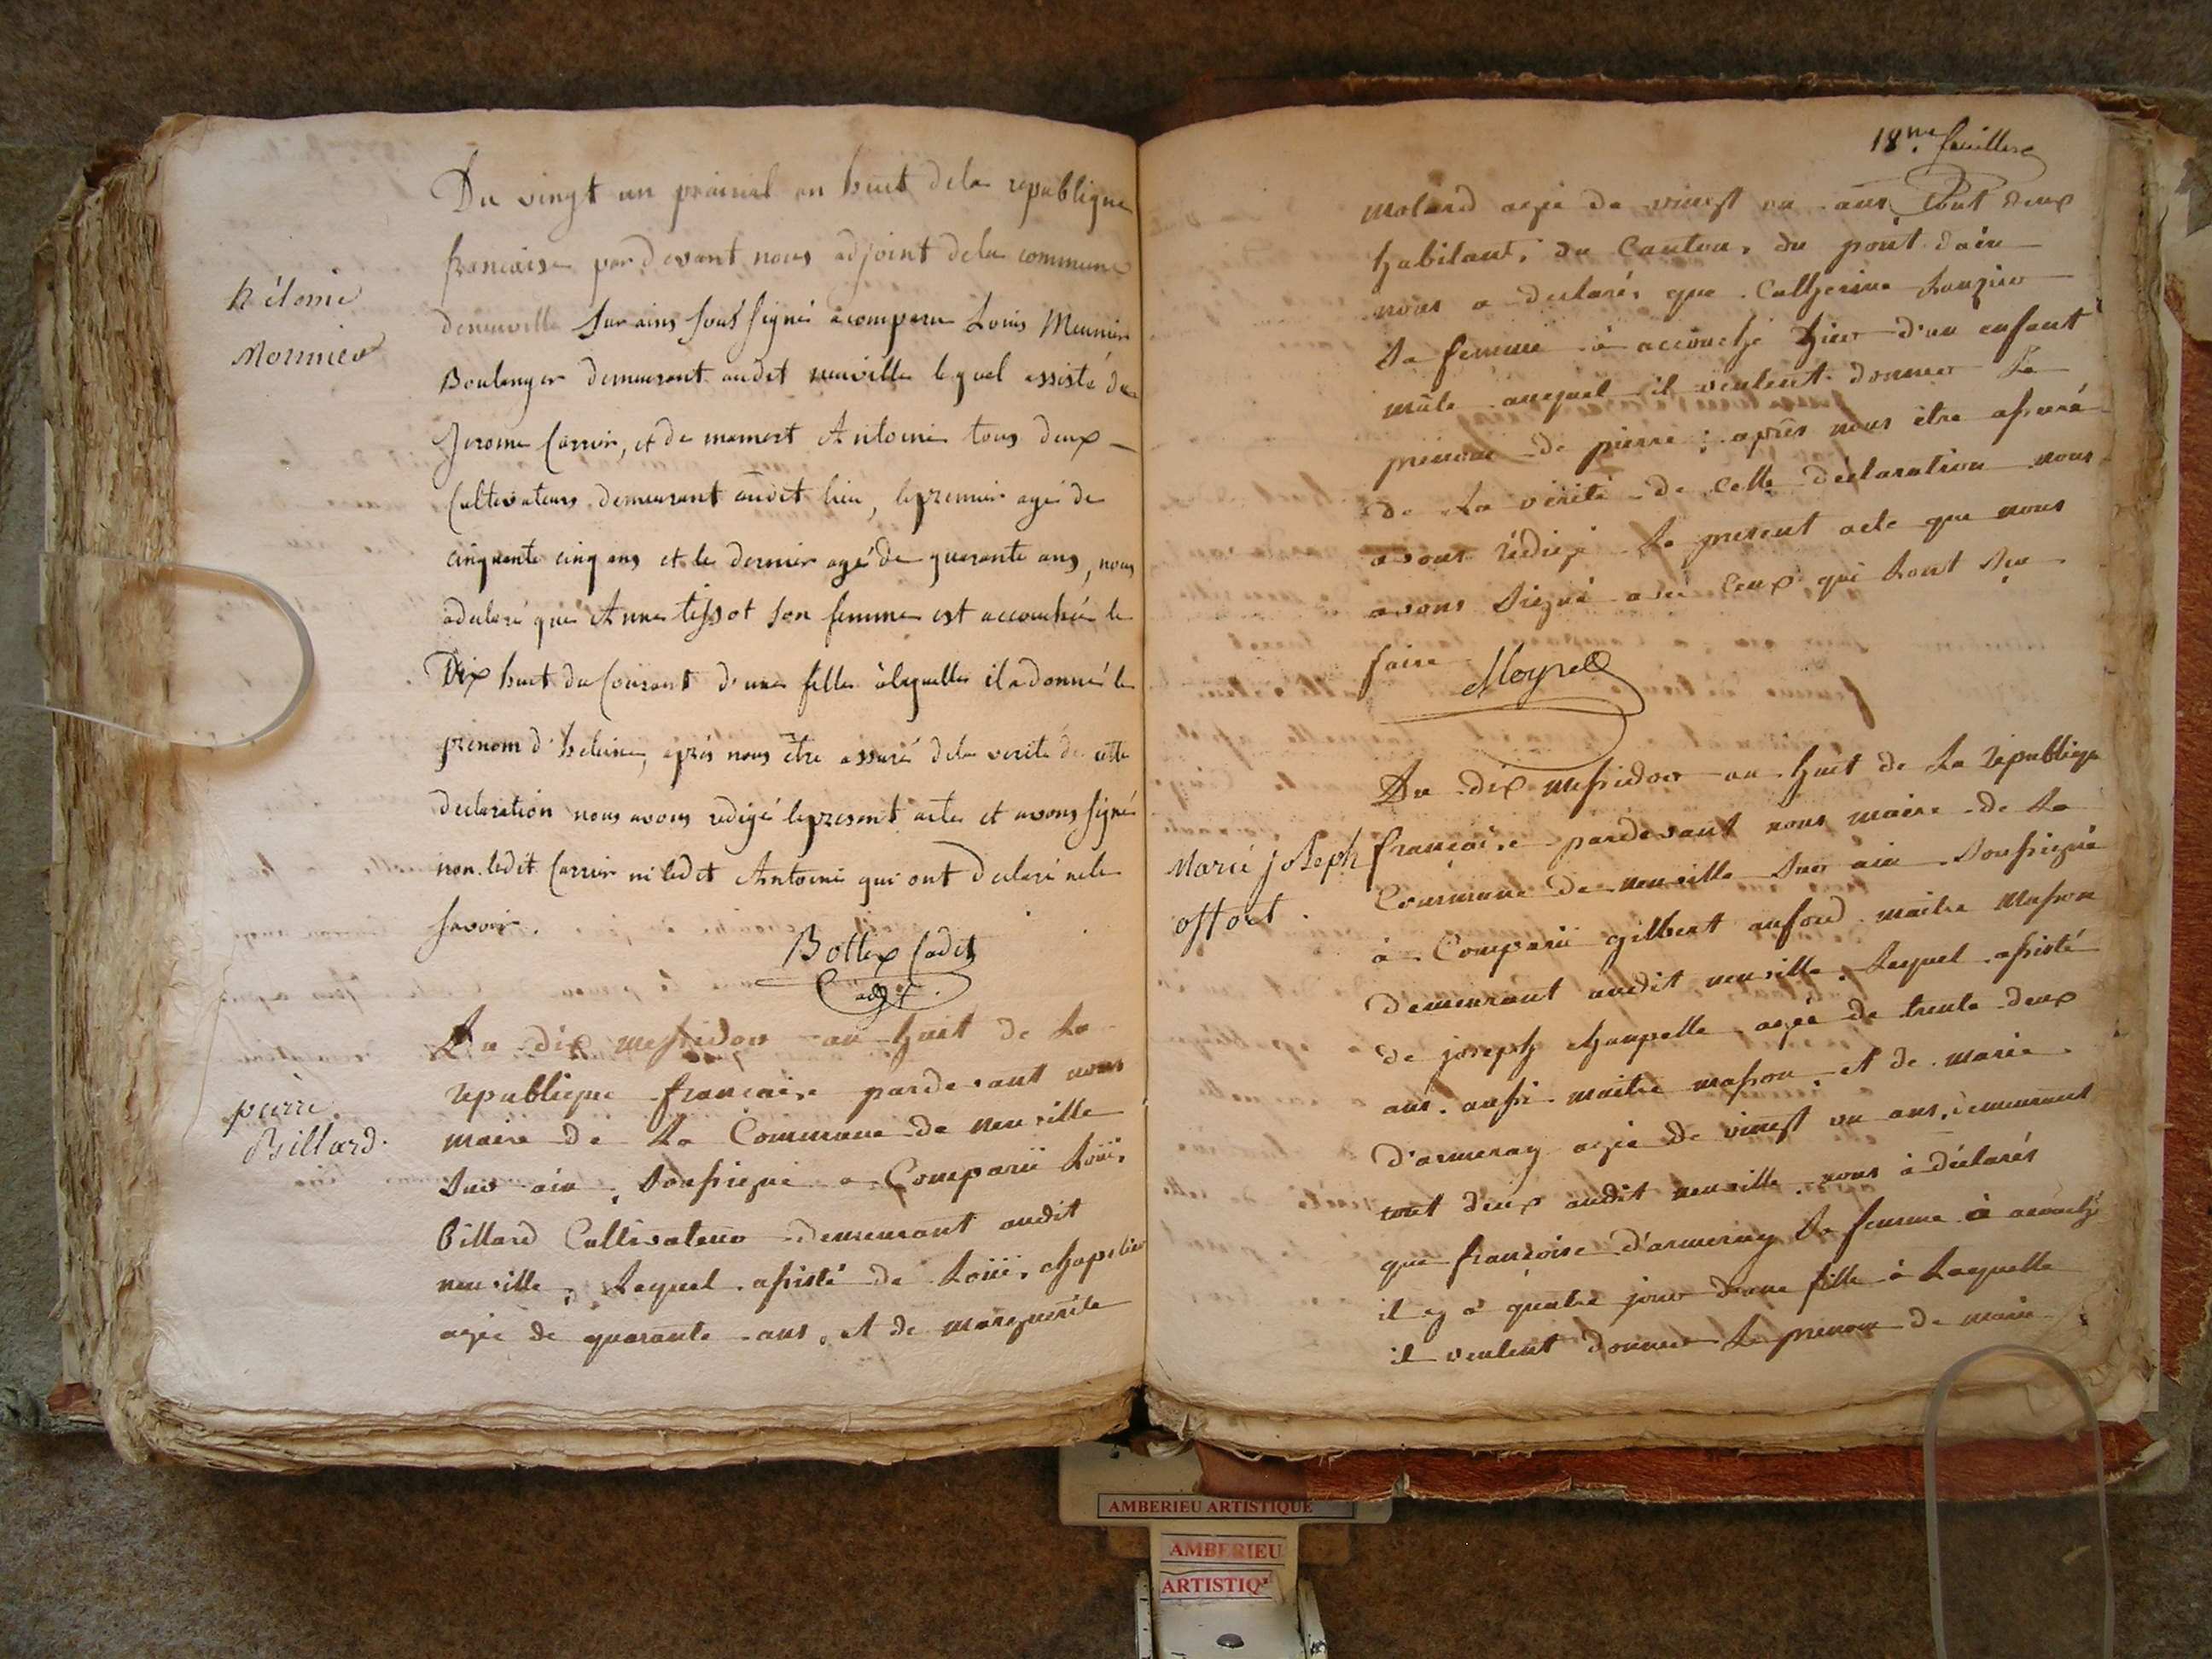 Du vingt un prairial an huit dela republique
francaise par devant nous adjoint dela commune
deneuville sur ains sous signé acomparu Louis Meunier
Boulanger demeurant audit neuville le quel assisté de
Jerome Carrier, et de mamert Antoine tous deux
Cultivateurs demeurant audit lieu, lepremier agé de
cinquante cinq ans et le dernier agé de quarante ans, nous
adeclaré que Anne tissot son femme est accouchée le
Dix huit du Courant d'une fille àlaquelle il adonné le
prenom d'heleine, aprés nous être assuré dela verité de cette
declaration nous avons redigé lepresent acte et avons signé
non ledit Carrier ni ledit Antoine qui ont declaré nele
savoir.
Bottex Cadet
adjt.
Du dix messidor an huit de La
republique francaise pardevant nous
maire de La Commune de neuville
Sur ain, Soussigné a Comparü Loüi,
billard Cultivateur demeurant audit
neuville, Lequel assisté de Loüi, chapelier
agée de quarante ans, et de marguerite
pierre
Billard.
18me feuillere
molard agée de vingt un ans, tout deux
habitant, du Canton, du pont dain
nous a declaré, que Catherine
Sa femme à accouché hier d'un enfant
mâle auquel il veulent donner Le
prenom de pierre; après nous être assuré
de La verité de Cette déclaration nous
avons rédigé Le present acte que nous
avons Signé avec Ceux qui Sont Seu
faire
Moyret
Du dix messidor an huit de La république
françoise pardevant nous maire de La
Commune de neuville Sur ain Soussigné
à Comparü gilbert aufort maitre Masson
demeurant audit neuville, Lequel assisté
de joseph chapelle agée de trente deux
ans aussi maitre masson et de marie
d'armeray agée de vingt un ans, demeurant
tout deux audit neuville nous à déclarés
que françoise d'armeray Sa femme à accouché
il y à quatre jour d'une fille à Laquelle
il veulent donner Le prenom de marie
Marie joseph
offort.
AMBERIEU ARTISTIQUE
AMBERIEU
ARTISTIQ